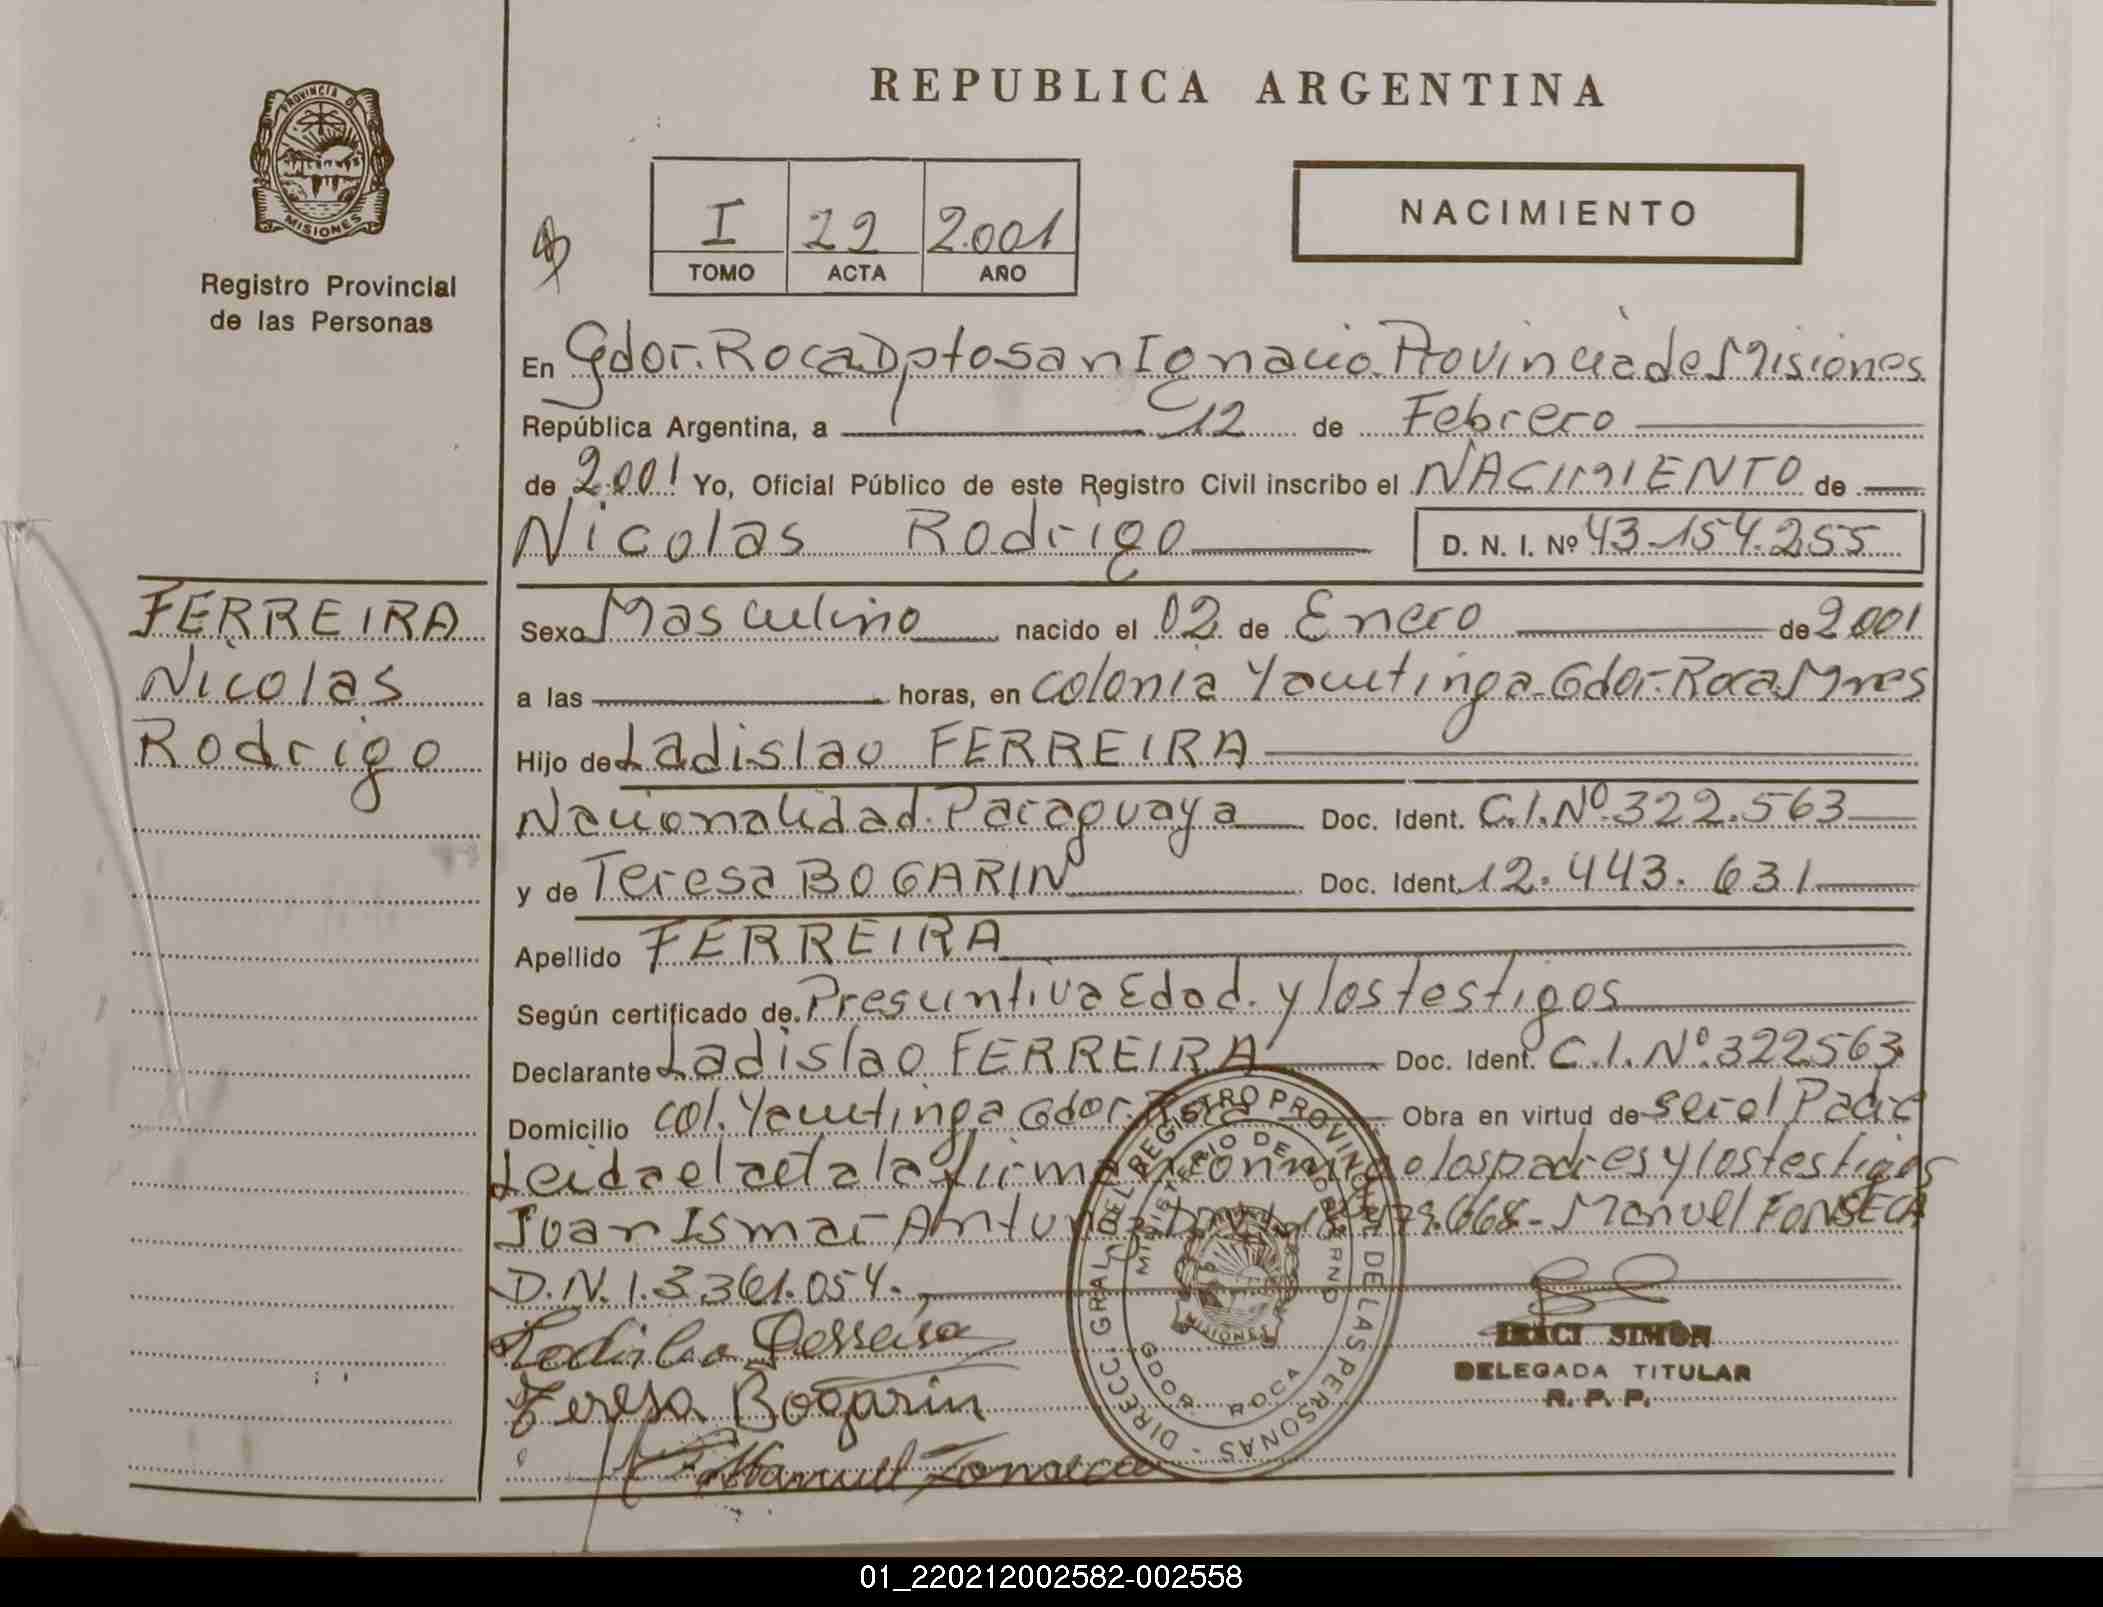 REPUBLICA ARGENTINA
PROVINCIA DE
MISIONES
Registro Provincial
de las Personas
I 22 2.001
TOMO ACTA AÑO
NACIMIENTO
En Gdor. Roca Dpto San Ignacio Provincia de Misiones
República Argentina, a 12 de Febrero
de 2.001 Yo, Oficial Público de este Registro Civil inscribo el NACIMIENTO de
Nicolas Rodrigo D. N. I. Nº 43.154.255
FERREIRA
Nicolas
Rodrigo
Sexo Masculino nacido el 02 de Enero de 2001
a las horas, en Colonia Yacutinga Gdor. Roca Mnes
Hijo de Ladislao FERREIRA
Nacionalidad Paraguaya Doc. Ident. C.I. Nº 322.563
y de Teresa BOGARIN Doc. Ident. 12.443.631
Apellido FERREIRA
Según certificado de Presuntiva Edad y los testigos
Declarante Ladislao FERREIRA Doc. Ident. C.I. Nº 322563
Domicilio Col. Yacutinga Gdor. Roca Obra en virtud de ser el Padre
Leida el acta la firman conmigo los padres y los testigos
Juan Ismar .668 - Manuel FONSECA
D.N.I. 3.361.054.
Ladislao Ferreira
Teresa Bogarin
Manuel Fonseca
DIRECC. GRAL. DEL REGISTRO PROVINCIAL DE LAS PERSONAS
MINISTERIO DE GOBIERNO
MISIONES
GDOR. ROCA
IRACI SIMON
DELEGADA TITULAR
R. P. P.
01_220212002582-002558